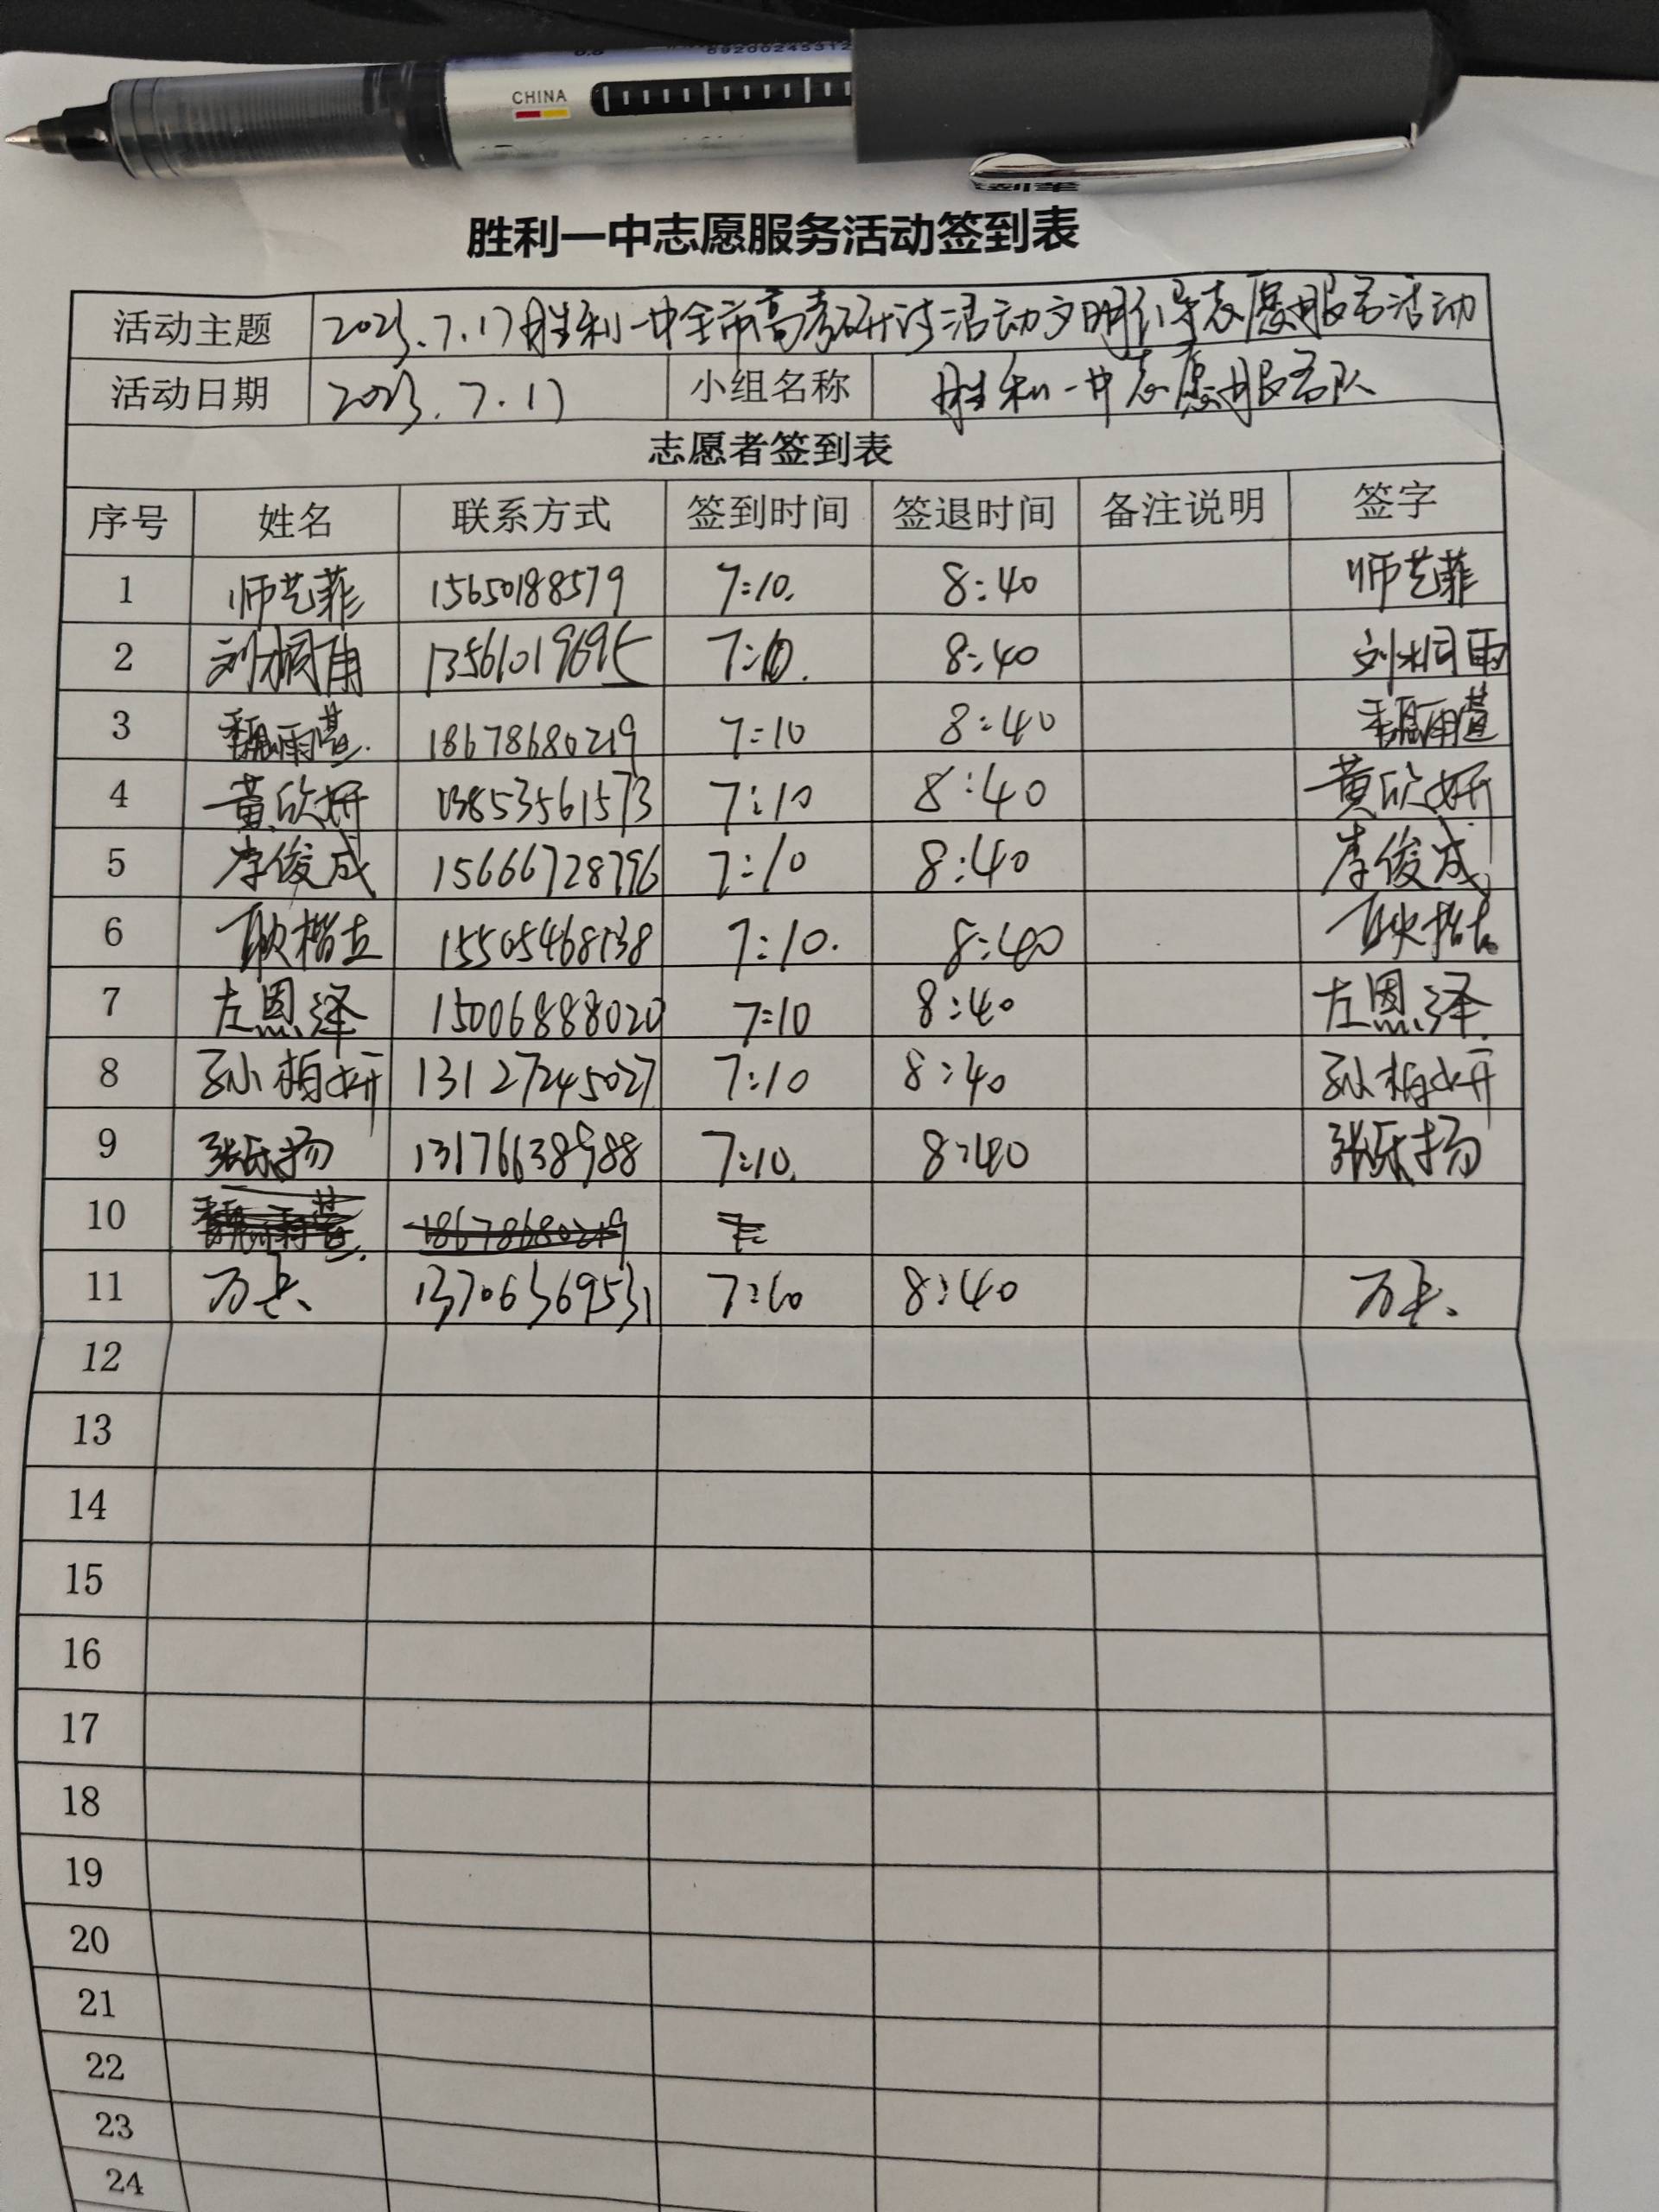 CHINA
胜利一中志愿服务活动签到表
活动主题 2023.7.17胜利一中全市高考研讨活动文明引导志愿服务活动
活动日期 2023.7.17 小组名称 胜利一中志愿服务队
志愿者签到表
序号 姓名 联系方式 签到时间 签退时间 备注说明 签字
1 师艺菲 15650188579 7:10. 8:40 师艺菲
2 刘桐雨 13561019695 7:10. 8:40 刘桐雨
3 魏雨萱. 18678680219 7:10 8:40 魏雨萱
4 黄欣妍 13853561573 7:10 8:40 黄欣妍
5 李俊成 15666728796 7:10 8:40 李俊成
6 耿楷 15505468138 7:10. 8:40 耿楷
7 左恩泽 15006888020 7:10 8:40 左恩泽
8 孙柏妍 13127245027 7:10 8:40 孙柏妍
9 张乐扬 13176638988 7:10. 8:40 张乐扬
10 魏雨萱. 18678680219
11 万 13706369531 7:10 8:40 万
12
13
14
15
16
17
18
19
20
21
22
23
24